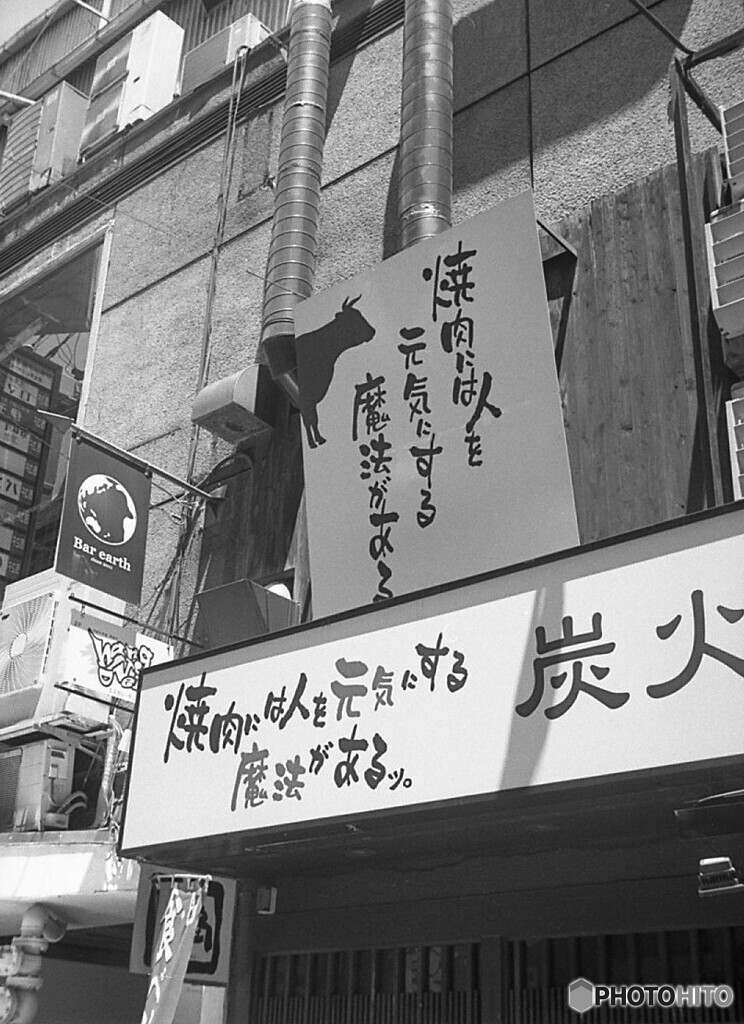 焼肉には人を
元気にする
魔法がある
Bar earth
焼肉には人を元気にする
魔法があるッ。
炭火
食べ
PHOTOHITO